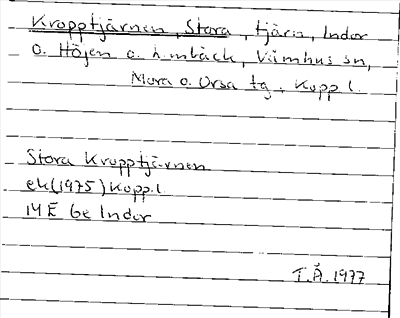 Kropptjärnen, Stora, tjärn, Indor
o. Höjen o. Limbäck, Våmhus sn,
Mora o. Orsa tg, Kopp l.
Stora Kropptjärnen
ek(1975)Kopp.l.
14E 6e Indor
T.Å.1977